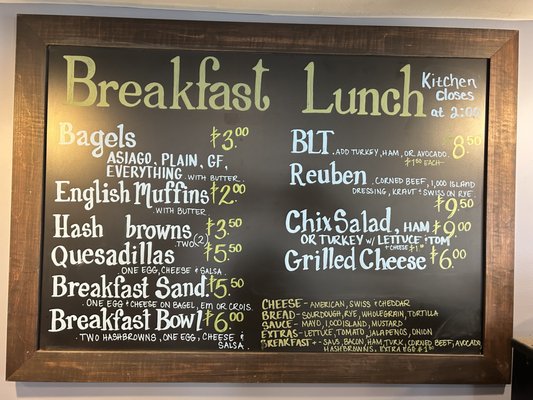 Breakfast
Bagels $3.00
ASIAGO, PLAIN, GF,
EVERYTHING. WITH BUTTER.
English Muffins $2.00
. WITH BUTTER.
Hash browns $3.50
TWO (2)
Quesadillas $5.50
ONE EGG, CHEESE & SALSA.
Breakfast Sand. $5.50
ONE EGG & CHEESE ON BAGEL, EM OR CROIS.
Breakfast Bowl $6.00
TWO HASHBROWNS, ONE EGG, CHEESE &
SALSA.
Lunch
Kitchen
closes
at 2:00
BLT. ADD TURKEY, HAM, OR AVOCADO. 8.50
$1.50 EACH
Reuben . CORNED BEEF, 1,000 ISLAND
DRESSING, KRAUT & SWISS ON RYE
$9.50
Chix Salad, HAM $9.00
OR TURKEY W/ LETTUCE & TOM
+ CHEESE $1.00
Grilled Cheese $6.00
CHEESE - AMERICAN, SWISS & CHEDDAR
BREAD - SOURDOUGH, RYE, WHOLEGRAIN, TORTILLA
SAUCE - MAYO, 1,000 ISLAND, MUSTARD
EXTRAS - LETTUCE, TOMATO, JALAPENOS, ONION
BREAKFAST + - SAUS, BACON, HAM, TURK, CORNED BEEF, AVOCADO
HASHBROWNS, EXTRA EGG $1.50